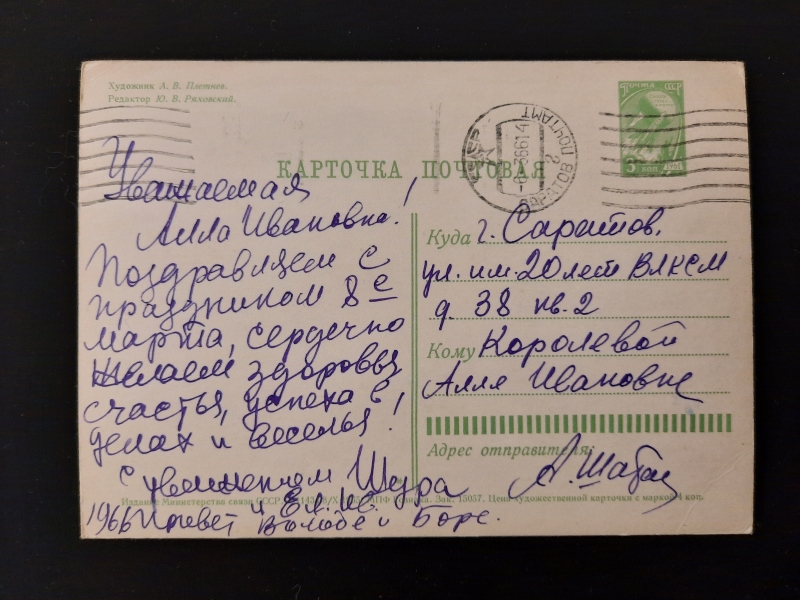 Художник А. В. Плетнев.
Редактор Ю. В. Ряховский.
ПОЧТА СССР
3 КОП
САРАТОВ ПОЧТАМТ
КАРТОЧКА ПОЧТОВАЯ
Уважаемая
Алла Ивановна!
Поздравляем с
праздником 8е
марта, сердечно
желаем здоровья
счастья, успеха в
делах и веселья!
с уважением Шура
и Ел. Ив.
1966 Привет Володе и Боре.
Куда г. Саратов,
ул. им. 20 лет ВЛКСМ
д. 38 кв. 2
Кому Королевой
Алле Ивановне
Адрес отправителя:
Издание Министерства связи СССР Зак. 15057. Цена художественной карточки с маркой 4 коп.